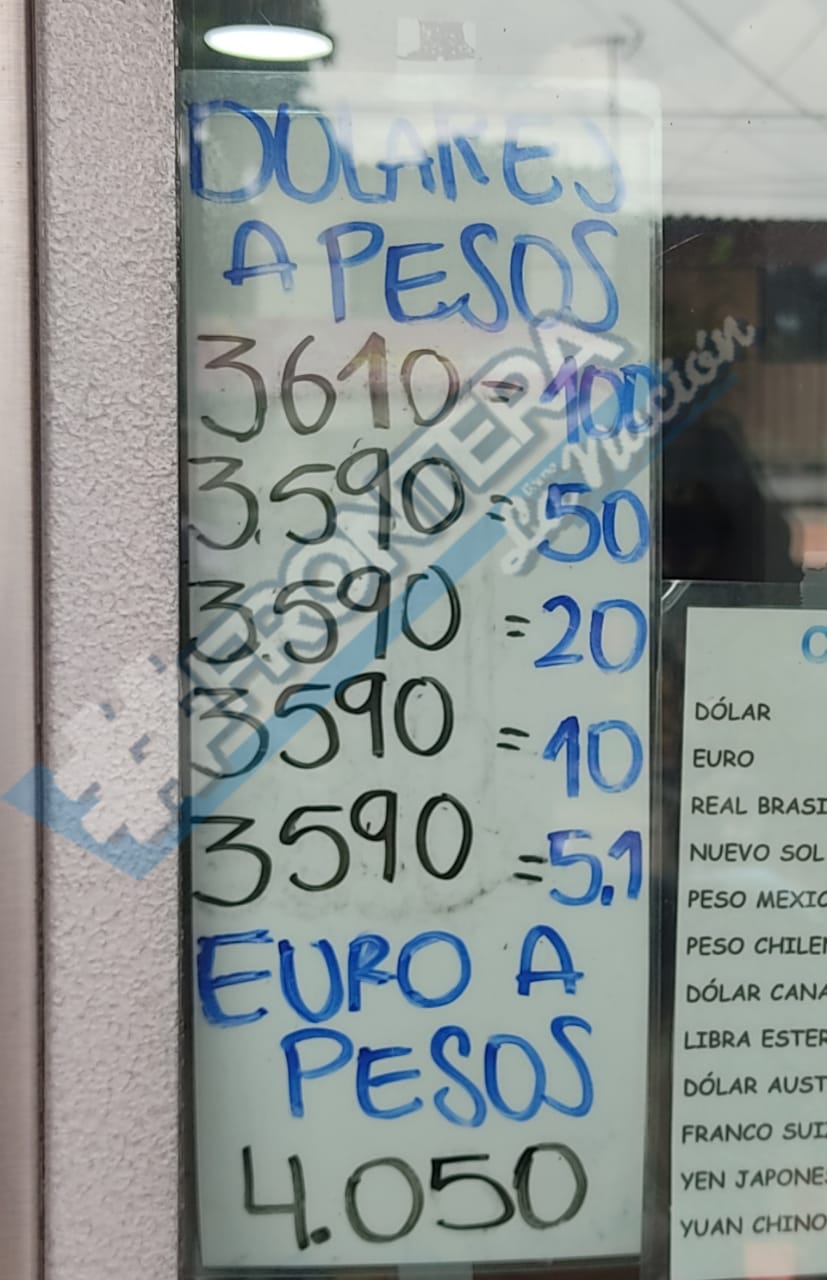 DOLARES
A PESOS
3610 = 100
3.590 = 50
3.590 = 20
3590 = 10
3590 = 5.1
EURO A
PESOS
4.050
FRONTERA
La Nación
DÓLAR
EURO
REAL BRASI
NUEVO SOL
PESO MEXIC
PESO CHILE
DÓLAR CANA
LIBRA ESTER
DÓLAR AUST
FRANCO SUI
YEN JAPONE
YUAN CHINO